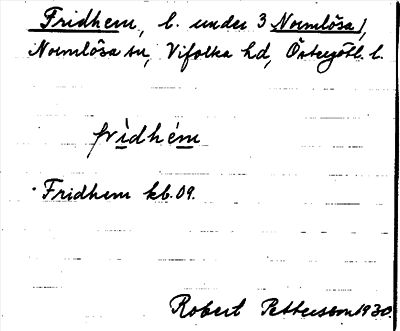 Fridhem, l. under 3 Normlösa,
Normlösa sn, Vifolka hd, Östergötl. l.
frìdhém
Fridhem kb. 09.
Robert Pettersson 1930.